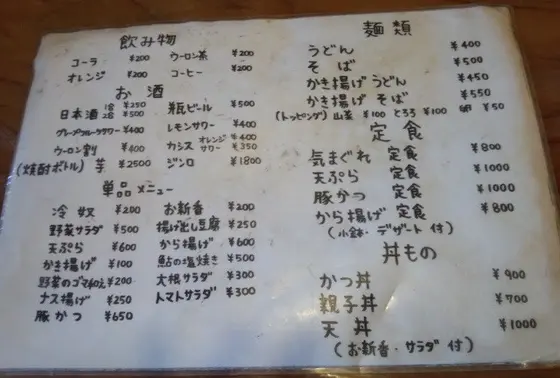 飲み物
コーラ ¥200 ウーロン茶 ¥200
オレンジ ¥200 コーヒー ¥200
お酒
日本酒 1合 ¥250 2合 ¥500 瓶ビール ¥500
グレープフルーツサワー ¥400 レモンサワー ¥400
ウーロン割 ¥400 カシス オレンジ ¥400 サワー ¥350
(焼酎ボトル) 芋 ¥2500 ジンロ ¥1800
単品メニュー
冷奴 ¥200 お新香 ¥200
野菜サラダ ¥500 揚げ出し豆腐 ¥250
天ぷら ¥600 から揚げ ¥600
かき揚げ ¥100 鮎の塩焼き ¥500
野菜のゴマ和え ¥200 大根サラダ ¥300
ナス揚げ ¥250 トマトサラダ ¥300
豚かつ ¥650
麺類
うどん ¥400
そば ¥500
かき揚げ うどん ¥450
かき揚げ そば ¥550
(トッピング) 山菜 ¥100 とろろ ¥100 卵 ¥50
定食
気まぐれ 定食 ¥800
天ぷら 定食 ¥1000
豚かつ 定食 ¥1000
から揚げ 定食 ¥800
(小鉢・デザート 付)
丼もの
かつ丼 ¥900
親子丼 ¥700
天丼 ¥1000
(お新香・サラダ 付)